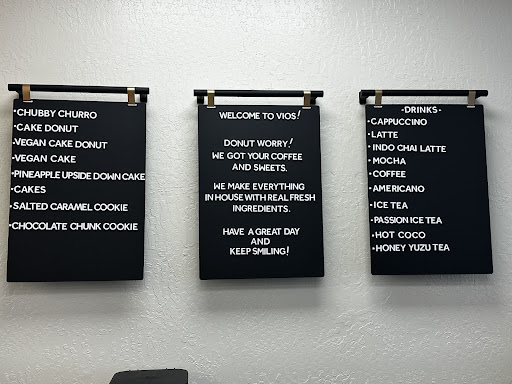 •CHUBBY CHURRO
•CAKE DONUT
•VEGAN CAKE DONUT
•VEGAN CAKE
•PINEAPPLE UPSIDE DOWN CAKE
•CAKES
•SALTED CARAMEL COOKIE
•CHOCOLATE CHUNK COOKIE
WELCOME TO VIOS!
DONUT WORRY!
WE GOT YOUR COFFEE
AND SWEETS.
WE MAKE EVERYTHING
IN HOUSE WITH REAL FRESH
INGREDIENTS.
HAVE A GREAT DAY
AND
KEEP SMILING!
-DRINKS-
•CAPPUCCINO
•LATTE
•INDO CHAI LATTE
•MOCHA
•COFFEE
•AMERICANO
•ICE TEA
•PASSION ICE TEA
•HOT COCO
•HONEY YUZU TEA